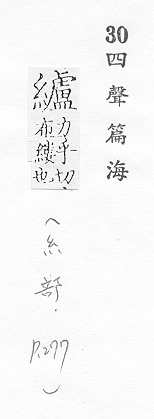 30四聲篇海
纑力乎切
布縷也
(糸部．P.277)